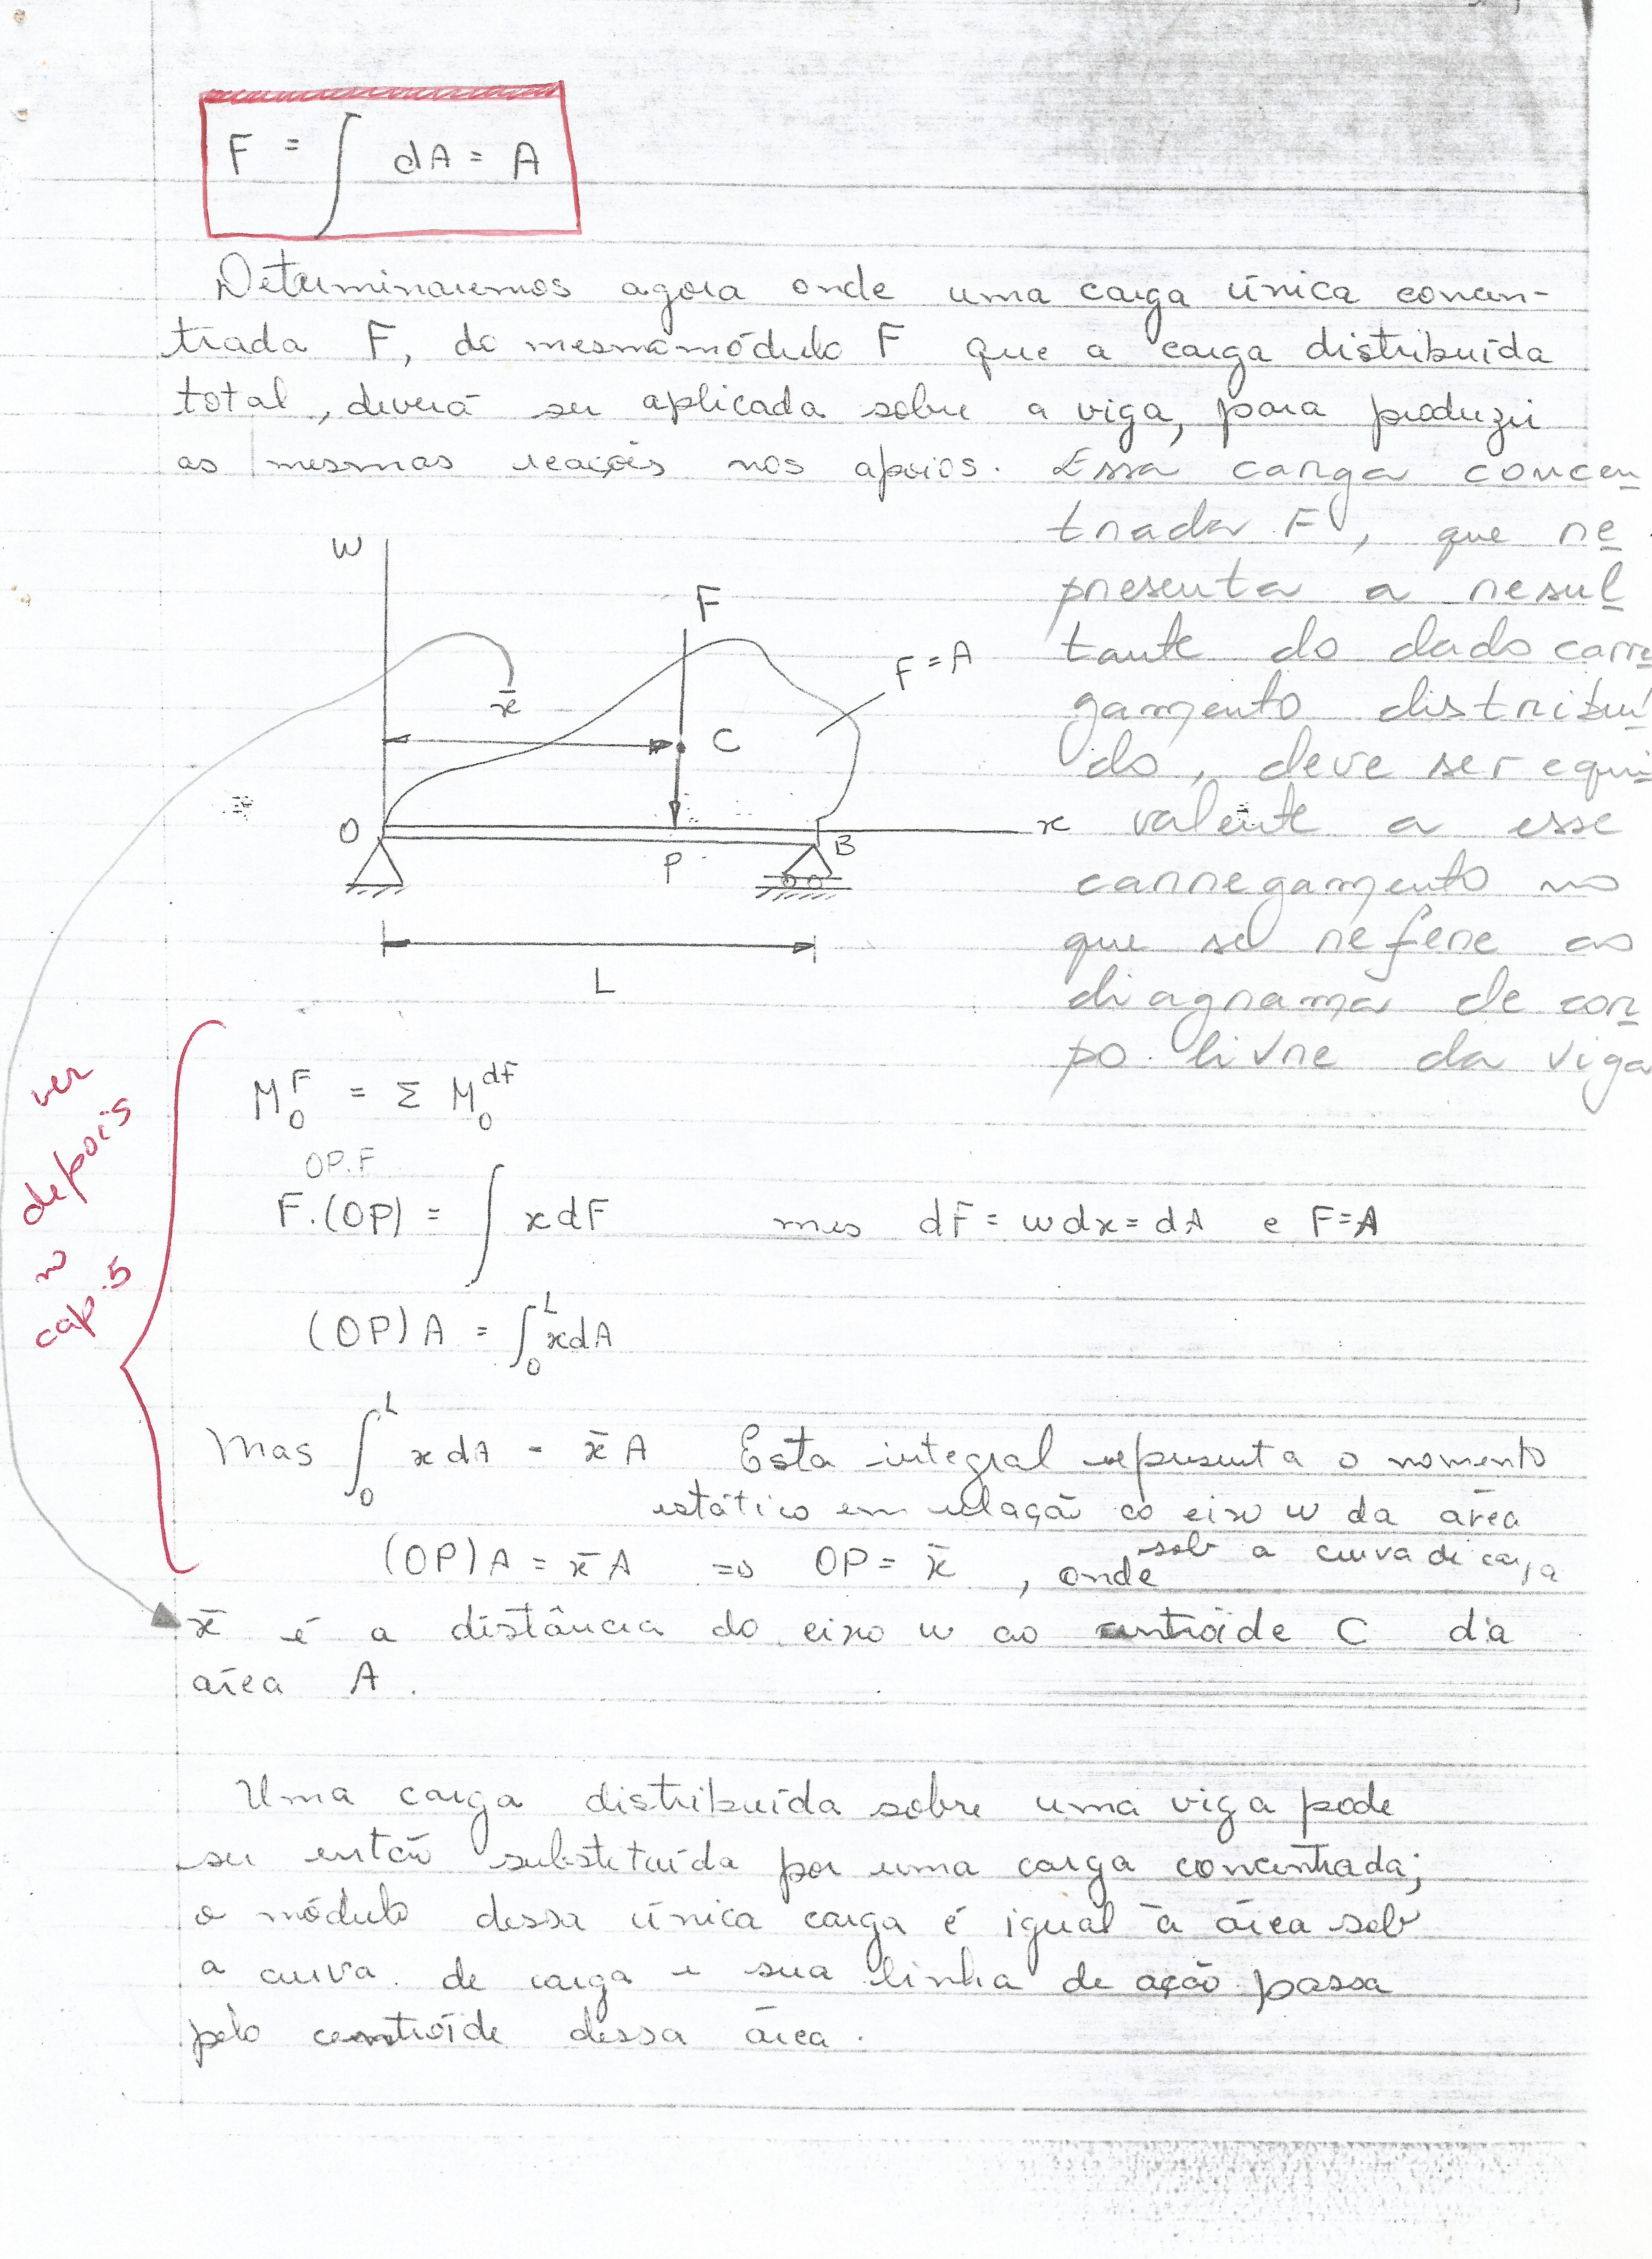 F = ∫ dA = A
Determinaremos agora onde uma carga única concen-
trada F, do mesmo módulo F que a carga distribuída
total, deverá ser aplicada sobre a viga, para produzir
as mesmas reações nos apoios. Essa carga concen
trada F, que re
presenta a resul
tante do dado carre
gamento distribuí
do, deve ser equi
valente a esse
carregamento no
que se refere ao
diagrama de cor
po livre da viga
W
F
F = A
x̄
C
O
P
B
x
L
ver
depois
no
cap. 5
M₀ᶠ = Σ M₀ᵈᶠ
OP.F
F.(OP) = ∫ x dF mas dF = w dx = dA e F = A
(OP) A = ∫₀ᴸ x dA
Mas ∫₀ᴸ x dA = x̄ A Esta integral representa o momento
estático em relação ao eixo w da área
sob a curva de carga
(OP) A = x̄ A => OP = x̄ , onde
x̄ é a distância do eixo w ao centróide C da
área A.
Uma carga distribuída sobre uma viga pode
ser então substituída por uma carga concentrada;
o módulo dessa única carga é igual à área sob
a curva de carga e sua linha de ação passa
pelo centróide dessa área.